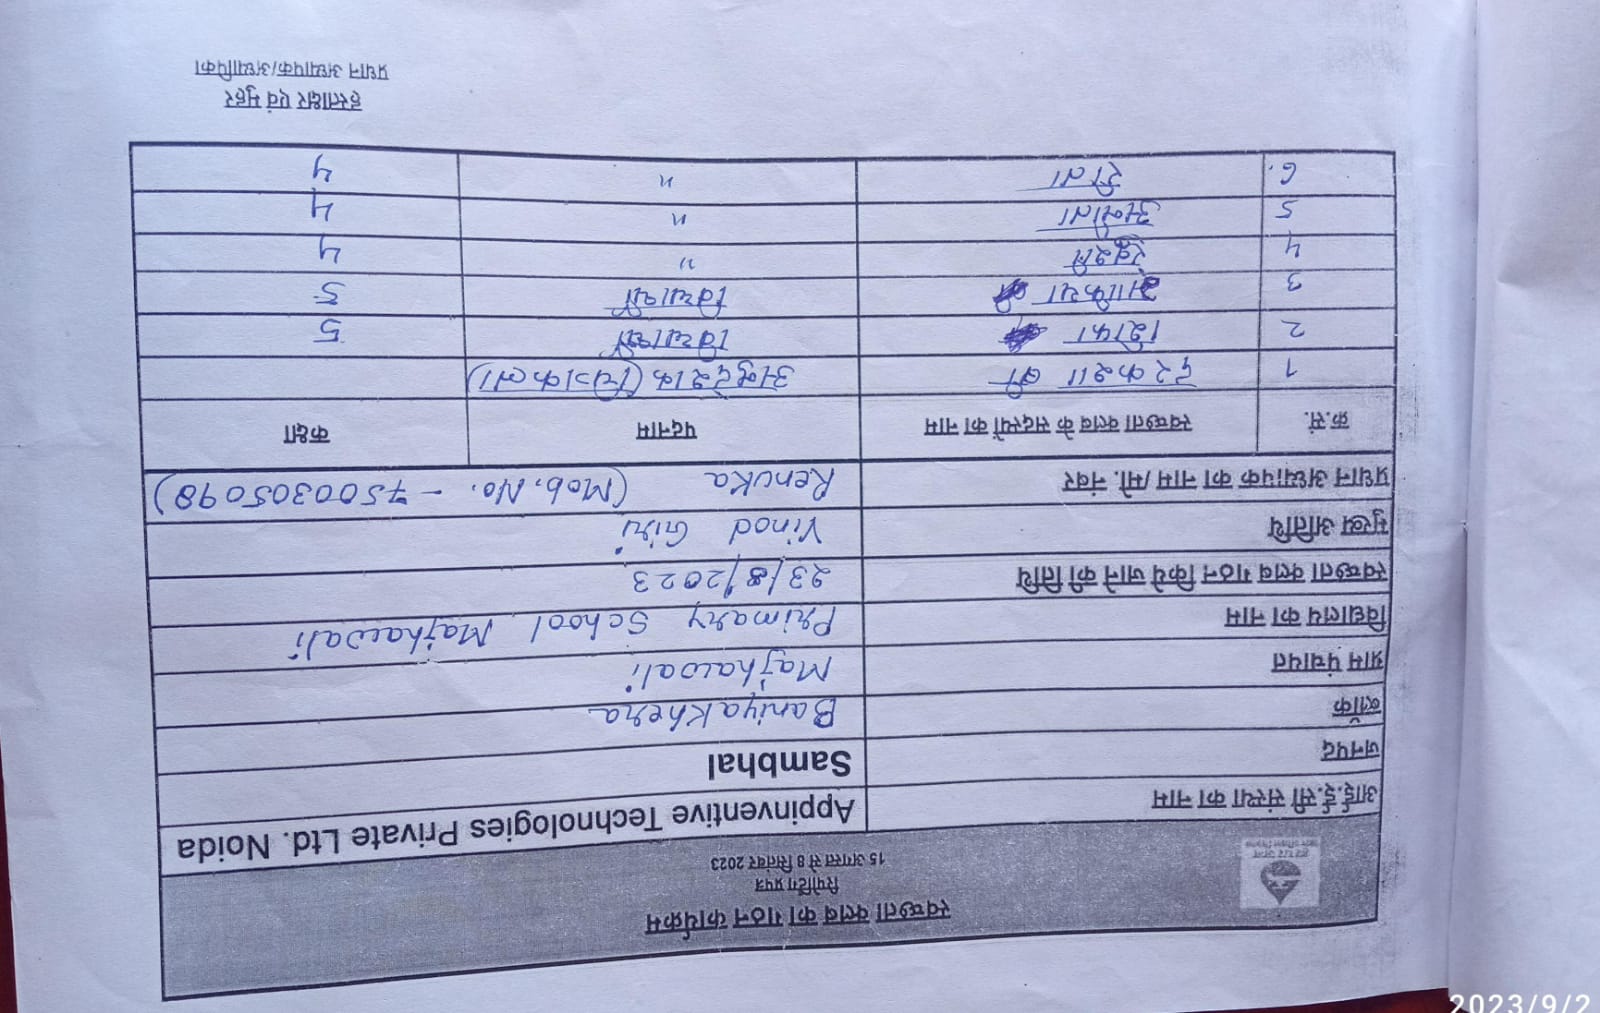 स्वच्छता क्लब का गठन कार्यक्रम
रिपोर्टिंग प्रपत्र
15 अगस्त से 8 सितंबर 2023
आई.ई.सी संस्था का नाम Appinventive Technologies Private Ltd. Noida
जनपद Sambhal
ब्लॉक BaniyaKhera
ग्राम पंचायत Majhawali
विद्यालय का नाम Primary School Majhawali
स्वच्छता क्लब गठन किये जाने की तिथि 23/8/2023
मुख्य अतिथि Vinod Giri
प्रधान अध्यापक का नाम /मो. नंबर Renuka (Mob. No. - 7500305098)
क्र.सं. स्वच्छता क्लब के सदस्यों का नाम पदनाम कक्षा
1 दरकशा बी अनुदेशक (चित्रकला)
2 विद्यार्थी 5
3 विद्यार्थी 5
4 खुशी " 4
5 अनीता " 4
6. रीना " 4
हस्ताक्षर एवं मुहर
प्रधान अध्यापक/अध्यापिका
2023/9/2